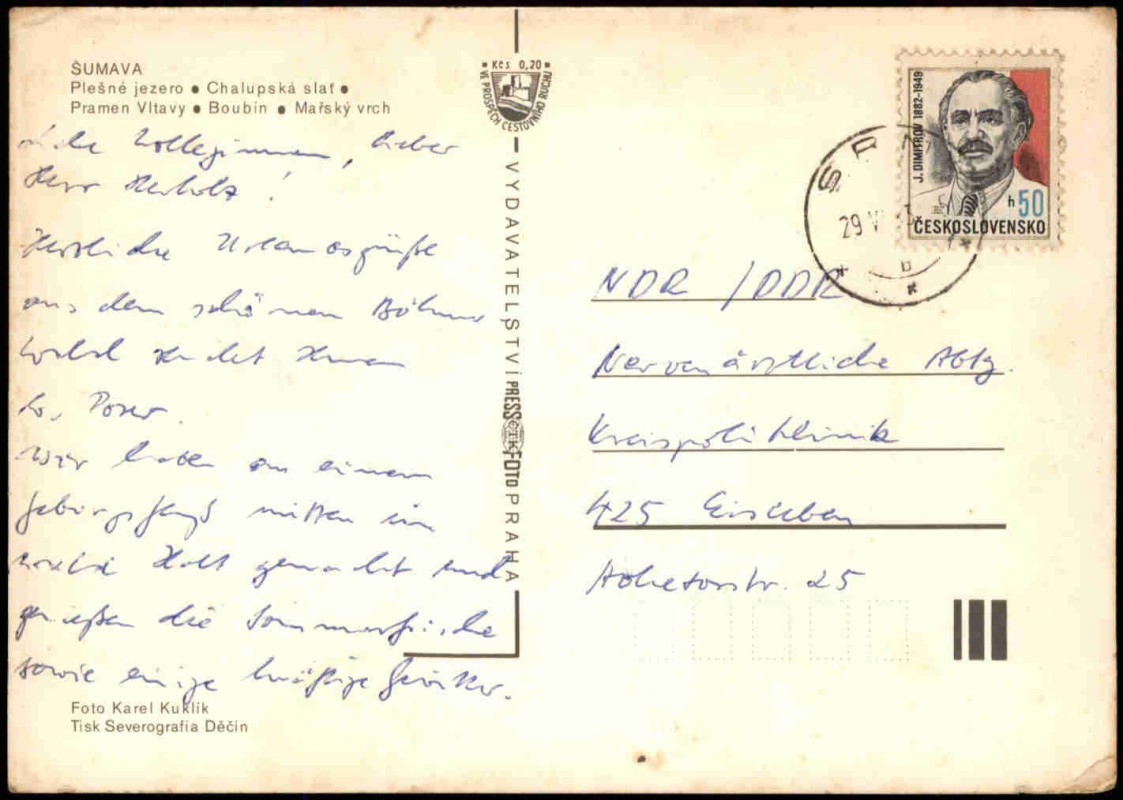 ŠUMAVA
Plešné jezero ● Chalupská slať ●
Pramen Vltavy ● Boubín ● Mařský vrch
Liebe Kolleginnen, lieber
Herr !
Herzliche Urlaubsgrüße
aus dem schönen Böhmer
Wald sendet Ihnen
Wir haben an einem
mitten im
Walde Halt gemacht und
genießen die Sommerfrische
sowie einige kräftige
Foto Karel Kuklík
Tisk Severografia Děčín
Kčs 0,20
VE PROSPĚCH CESTOVNÍHO RUCHU
VYDAVATELSTVÍ PRESSFOTO PRAHA
ČTK
J. DIMITROV 1882-1949
h 50
ČESKOSLOVENSKO
29 V
NDR / DDR
Nervenärztliche Abtg.
Kreispoliklinik
425 Eisleben
25